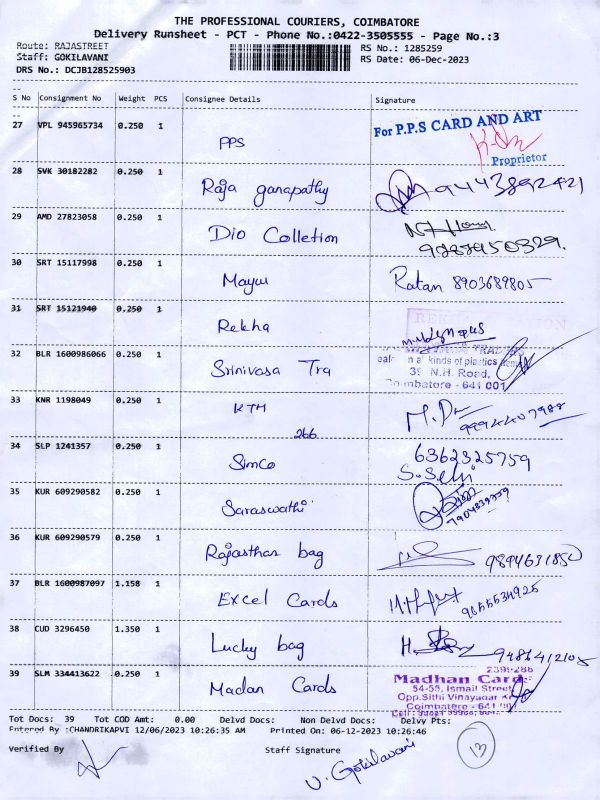 THE PROFESSIONAL COURIERS, COIMBATORE
Delivery Runsheet - PCT - Phone No.:0422-3505555 - Page No.:3
Route: RAJASTREET RS No.: 1285259
Staff: GOKILAVANI RS Date: 06-Dec-2023
DRS No.: DCJB128525903
S No Consignment No Weight PCS Consignee Details Signature
27 VPL 945965734 0.250 1 PPS For P.P.S CARD AND ART
Proprietor
28 SVK 30182282 0.250 1 Raja ganapathy 9443892421
29 AMD 27823058 0.250 1 Dio Colletion
30 SRT 15117998 0.250 1 Mayur Ratan 8903689805
31 SRT 15121940 0.250 1 Rekha
32 BLR 1600986066 0.250 1 Srinivasa Tra
kinds of plastics
39, N.H. Road,
Coimbatore - 641 001
33 KNR 1198049 0.250 1 KTM
266
34 SLP 1241357 0.250 1 Simco 6362325759
S. Selvi
35 KUR 609290582 0.250 1 Saraswathi
7904839759
36 KUR 609290579 0.250 1 Rajasthan bag
37 BLR 1600987097 1.158 1 Excel Cards 9655534925
38 CUD 3296450 1.350 1 Lucky bag 9486412105
39 SLM 334413622 0.250 1 Madan Cards
Madhan Cards
54-55, Ismail Street
Opp.Sithi Vinayagar
Coimbatore - 641 001
Tot Docs: 39 Tot COD Amt: 0.00 Delvd Docs: Non Delvd Docs: Delvy Pts:
Entered By :CHANDRIKAPVI 12/06/2023 10:26:35 AM Printed On: 06-12-2023 10:26:46
Verified By Staff Signature 13
V. Gokilavani